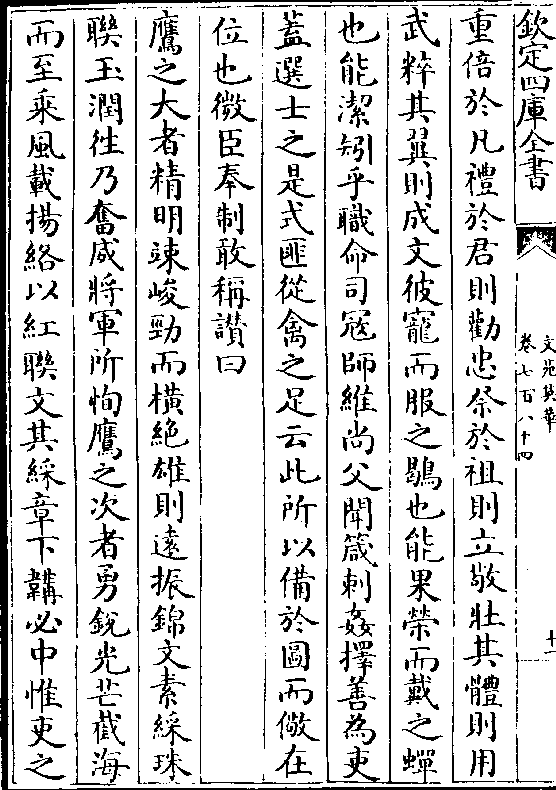 欽定四庫全書
文苑英華
卷七百八十四
十一
重倍於凡禮於君則勸忠祭於祖則立敬壯其體則用
武粹其翼則成文彼寵而服之鶡也能果榮而戴之蟬
也能潔矧乎職命司冦師維尚父聞箴刺姦擇善為吏
葢選士之是式匪從禽之足云此所以備於圖而儆在
位也微臣奉制敢稱讃曰
鷹之大者精明竦峻勁而橫絶雄則遠振錦文素綵珠
聯玉潤徃乃奮威將軍所恂鷹之次者勇鋭光芒截海
而至乘風載揚絡以紅聯文其綵章下鞲必中惟吏之